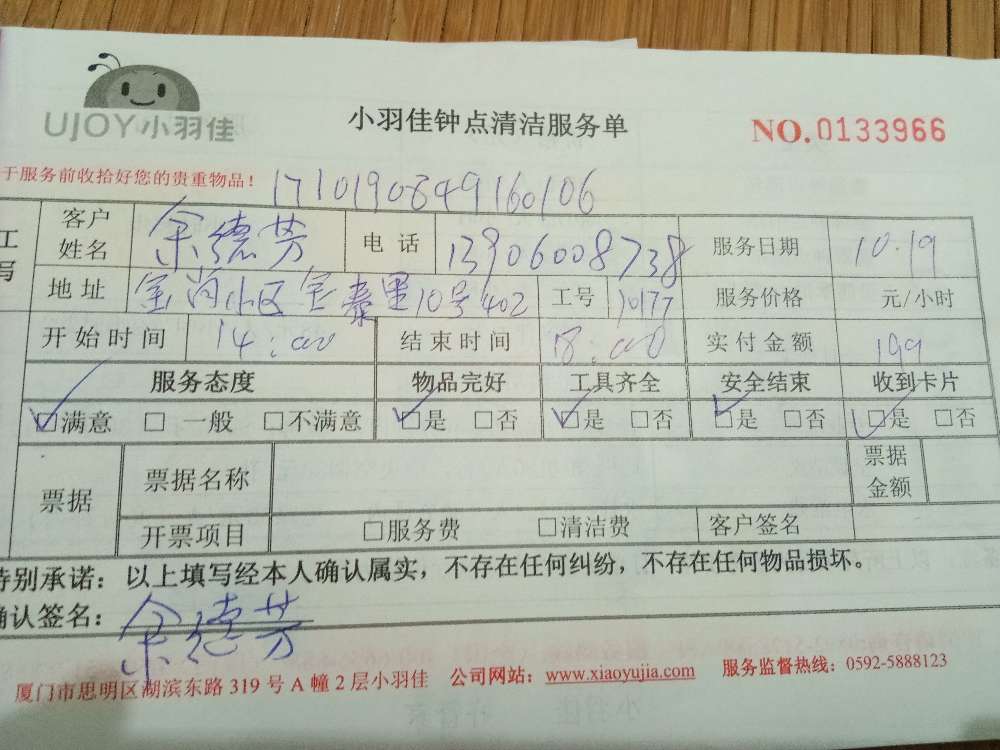 UJOY小羽佳
小羽佳钟点清洁服务单
NO.0133966
于服务前收拾好您的贵重物品！
1710190849160106
工 客户姓名 余德芳 电话 13906008738 服务日期 10.19
写 地址 金尚小区金泰里10号402 工号 10177 服务价格 元/小时
开始时间 14:00 结束时间 18:00 实付金额 199
服务态度 物品完好 工具齐全 安全结束 收到卡片
☑满意 □一般 □不满意 ☑是 □否 ☑是 □否 ☑是 □否 ☑是 □否
票据 票据名称 票据金额
开票项目 □服务费 □清洁费 客户签名
特别承诺：以上填写经本人确认属实，不存在任何纠纷，不存在任何物品损坏。
确认签名：余德芳
厦门市思明区湖滨东路319号A幢2层小羽佳 公司网站：www.xiaoyujia.com 服务监督热线：0592-5888123